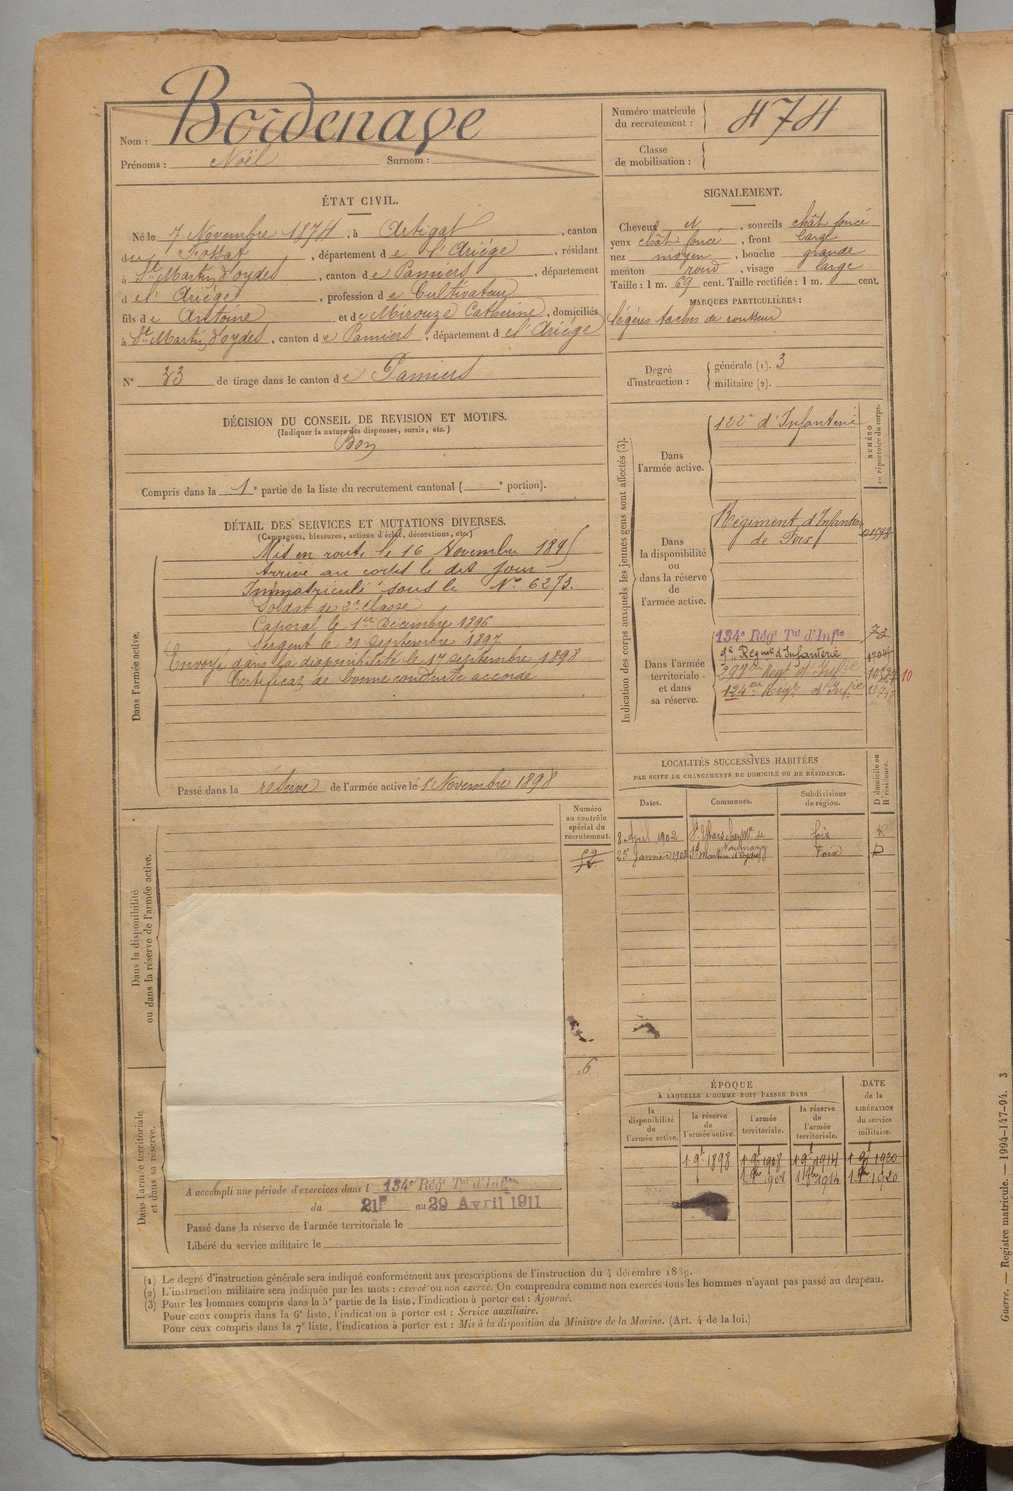 Nom : Bordenave
Prénoms : Noël Surnom :
Numéro matricule du recrutement : 474
Classe de mobilisation :
ÉTAT CIVIL.
Né le 7 Novembre 1874, à Artigat, canton
du Fossat, département de l'Ariège, résidant
à St Martin d'oydes, canton de Pamiers, département
de l'Ariège, profession de Cultivateur
fils de Antoine et de Mirouze Catherine, domiciliés
à St Martin d'oydes, canton de Pamiers, département de l'Ariège
N° 33 de tirage dans le canton de Pamiers
SIGNALEMENT.
Cheveux et, sourcils chât. foncé
yeux chât. foncé, front large
nez moyen, bouche grande
menton rond, visage large
Taille : 1 m. 69 cent. Taille rectifiée : 1 m. cent.
MARQUES PARTICULIÈRES :
légères taches de rousseur
Degré d'instruction : générale (1). 3
militaire (2).
DÉCISION DU CONSEIL DE REVISION ET MOTIFS.
(Indiquer la nature des dispenses, sursis, etc.)
Bon
Compris dans la 1e partie de la liste du recrutement cantonal ( e portion).
DÉTAIL DES SERVICES ET MUTATIONS DIVERSES.
(Campagnes, blessures, actions d'éclat, décorations, etc.)
Dans l'armée active.
Mis en route le 16 Novembre 1895
Arrivé au corps le dit jour
Immatriculé sous le N° 6273.
Soldat de 2e classe
Caporal le 1er Décembre 1896
Sergent le 21 Septembre 1897
Envoyé dans la disponibilité le 17 septembre 1898
Certificat de bonne conduite accordé
Passé dans la réserve de l'armée active le 1er Novembre 1898
Indication des corps auxquels les jeunes gens sont affectés (3).
NUMÉRO au répertoire du corps.
Dans l'armée active.
122e d'Infanterie
Dans la disponibilité ou dans la réserve de l'armée active.
Régiment d'Infanterie
de Foix
Dans l'armée territoriale et dans sa réserve.
134e Régt Tal d'Infie
9e Régiment d'Infanterie
297e Régt d'Infie
124e Régt d'Infie
10
LOCALITÉS SUCCESSIVES HABITÉES
PAR SUITE DE CHANGEMENTS DE DOMICILE OU DE RÉSIDENCE.
Dates. Communes. Subdivisions de région. D domicile ou R résidence.
8 Avril 1902 foix R
25 Janvier 1902 St Martin d'oydes Foix D
Numéro au contrôle spécial du recrutement.
Dans la disponibilité ou dans la réserve de l'armée active.
Dans l'armée territoriale et dans sa réserve.
ÉPOQUE
À LAQUELLE L'HOMME DOIT PASSER DANS
la disponibilité de l'armée active.
la réserve de l'armée active.
l'armée territoriale.
la réserve de l'armée territoriale.
DATE de la LIBÉRATION du service militaire.
1 9bre 1898 1 9bre 1908 1 9bre 1914 1 9bre 1920
A accompli une période d'exercices dans l 134e Régt Tal d'Infie
du 21 au 29 Avril 1911
Passé dans la réserve de l'armée territoriale le
Libéré du service militaire le
(1) Le degré d'instruction générale sera indiqué conformément aux prescriptions de l'instruction du 4 décembre 1889.
(2) L'instruction militaire sera indiquée par les mots : exercé ou non exercé. On comprendra comme non exercés tous les hommes n'ayant pas passé au drapeau.
(3) Pour les hommes compris dans la 5e partie de la liste, l'indication à porter est : Ajourné.
Pour ceux compris dans la 6e liste, l'indication à porter est : Service auxiliaire.
Pour ceux compris dans la 7e liste, l'indication à porter est : Mis à la disposition du Ministre de la Marine. (Art. 4 de la loi.)
Guerre. — Registre matricule. — 1994-147-94. 3